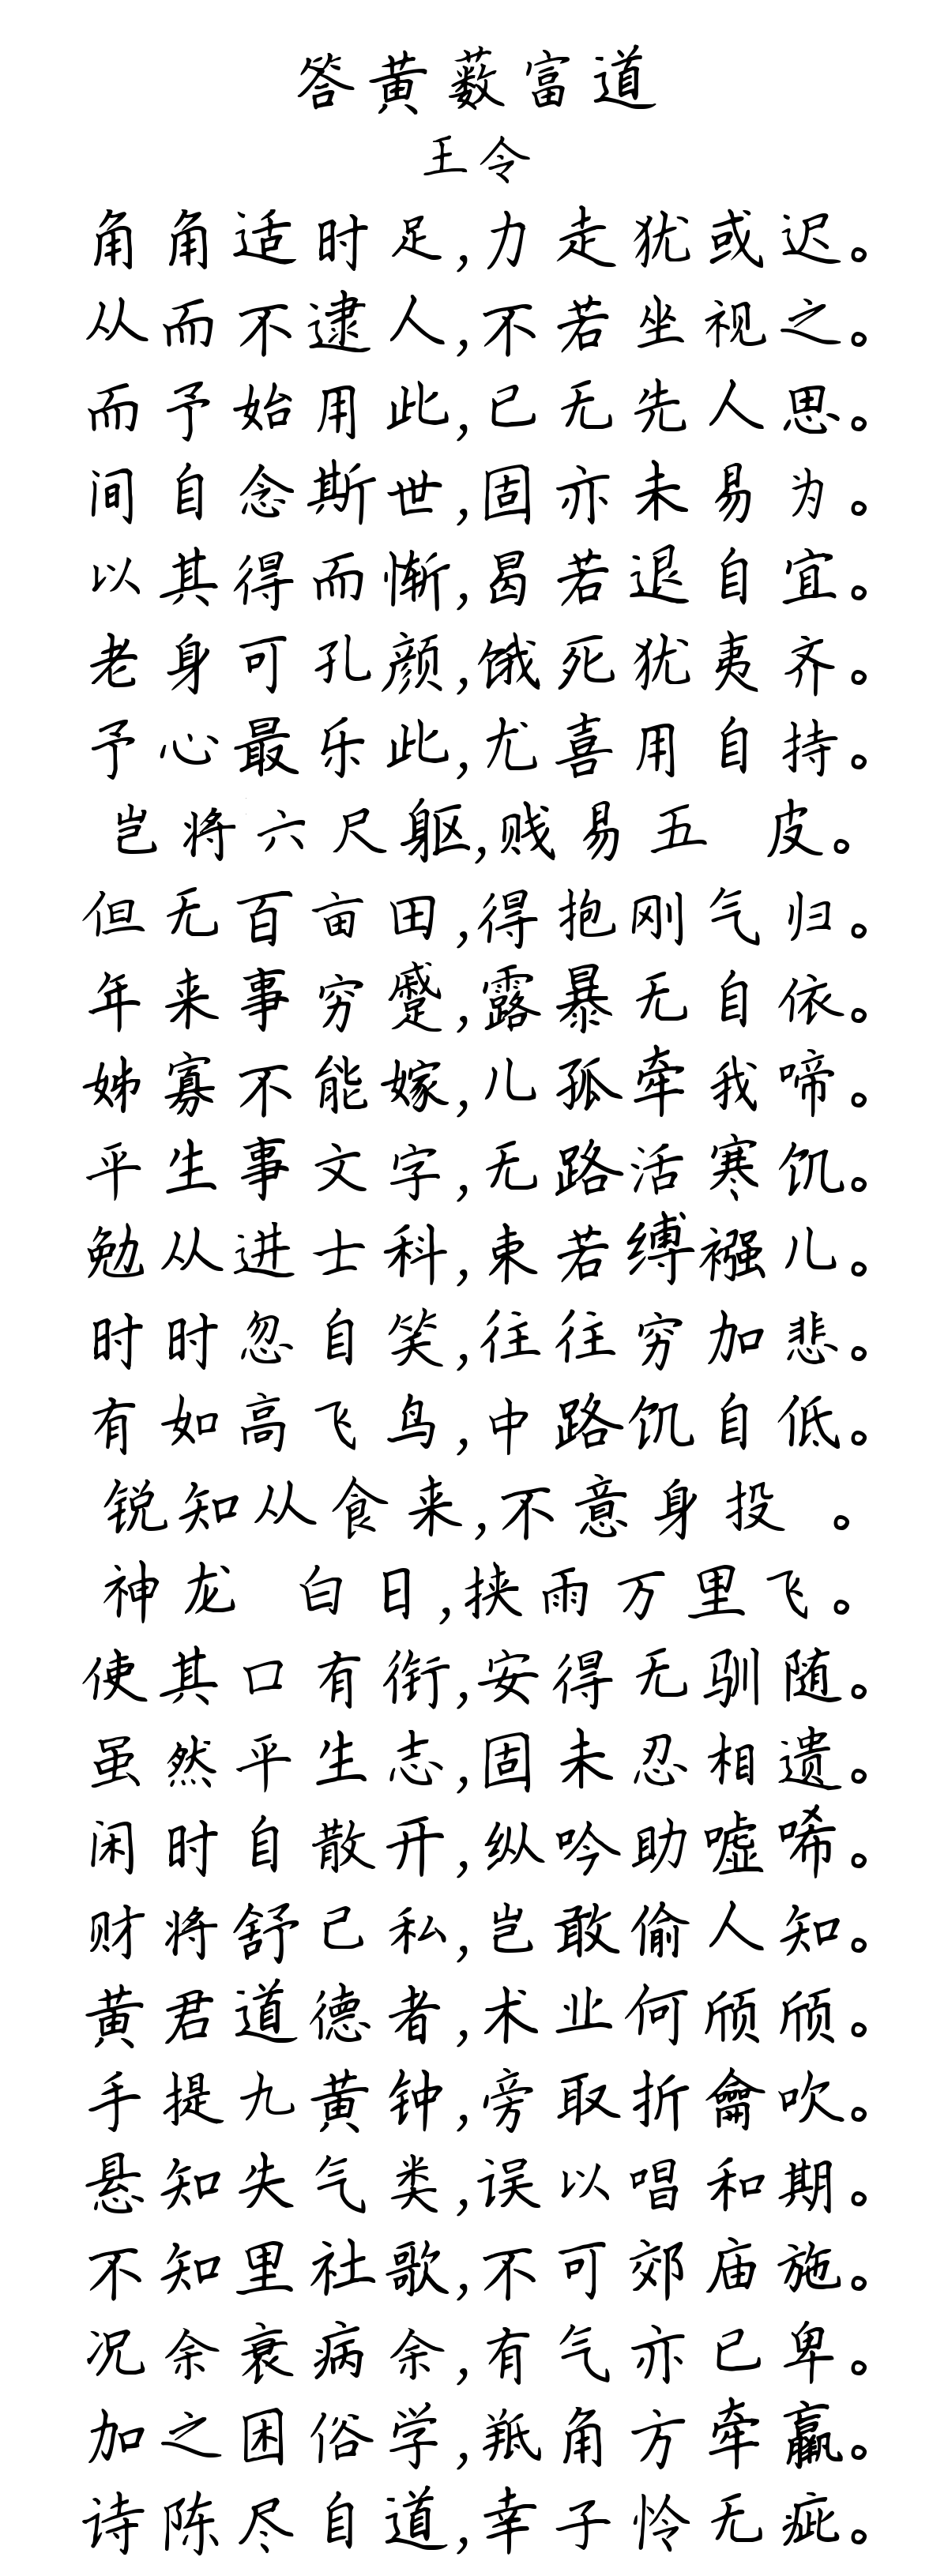 答黄薮富道
王令
角角适时足,力走犹或迟。
从而不逮人,不若坐视之。
而予始用此,已无先人思。
间自念斯世,固亦未易为。
以其得而惭,曷若退自宜。
老身可孔颜,饿死犹夷齐。
予心最乐此,尤喜用自持。
岂将六尺躯,贱易五 皮。
但无百亩田,得抱刚气归。
年来事穷蹙,露暴无自依。
姊寡不能嫁,儿孤牵我啼。
平生事文字,无路活寒饥。
勉从进士科,束若缚襁儿。
时时忽自笑,往往穷加悲。
有如高飞鸟,中路饥自低。
锐知从食来,不意身投 。
神龙 白日,挟雨万里飞。
使其口有衔,安得无驯随。
虽然平生志,固未忍相遗。
闲时自散开,纵吟助嘘唏。
财将舒己私,岂敢偷人知。
黄君道德者,术业何颀颀。
手提九黄钟,旁取折龠吹。
悬知失气类,误以唱和期。
不知里社歌,不可郊庙施。
况余衰病余,有气亦已卑。
加之困俗学,羝角方牵羸。
诗陈尽自道,幸子怜无疵。